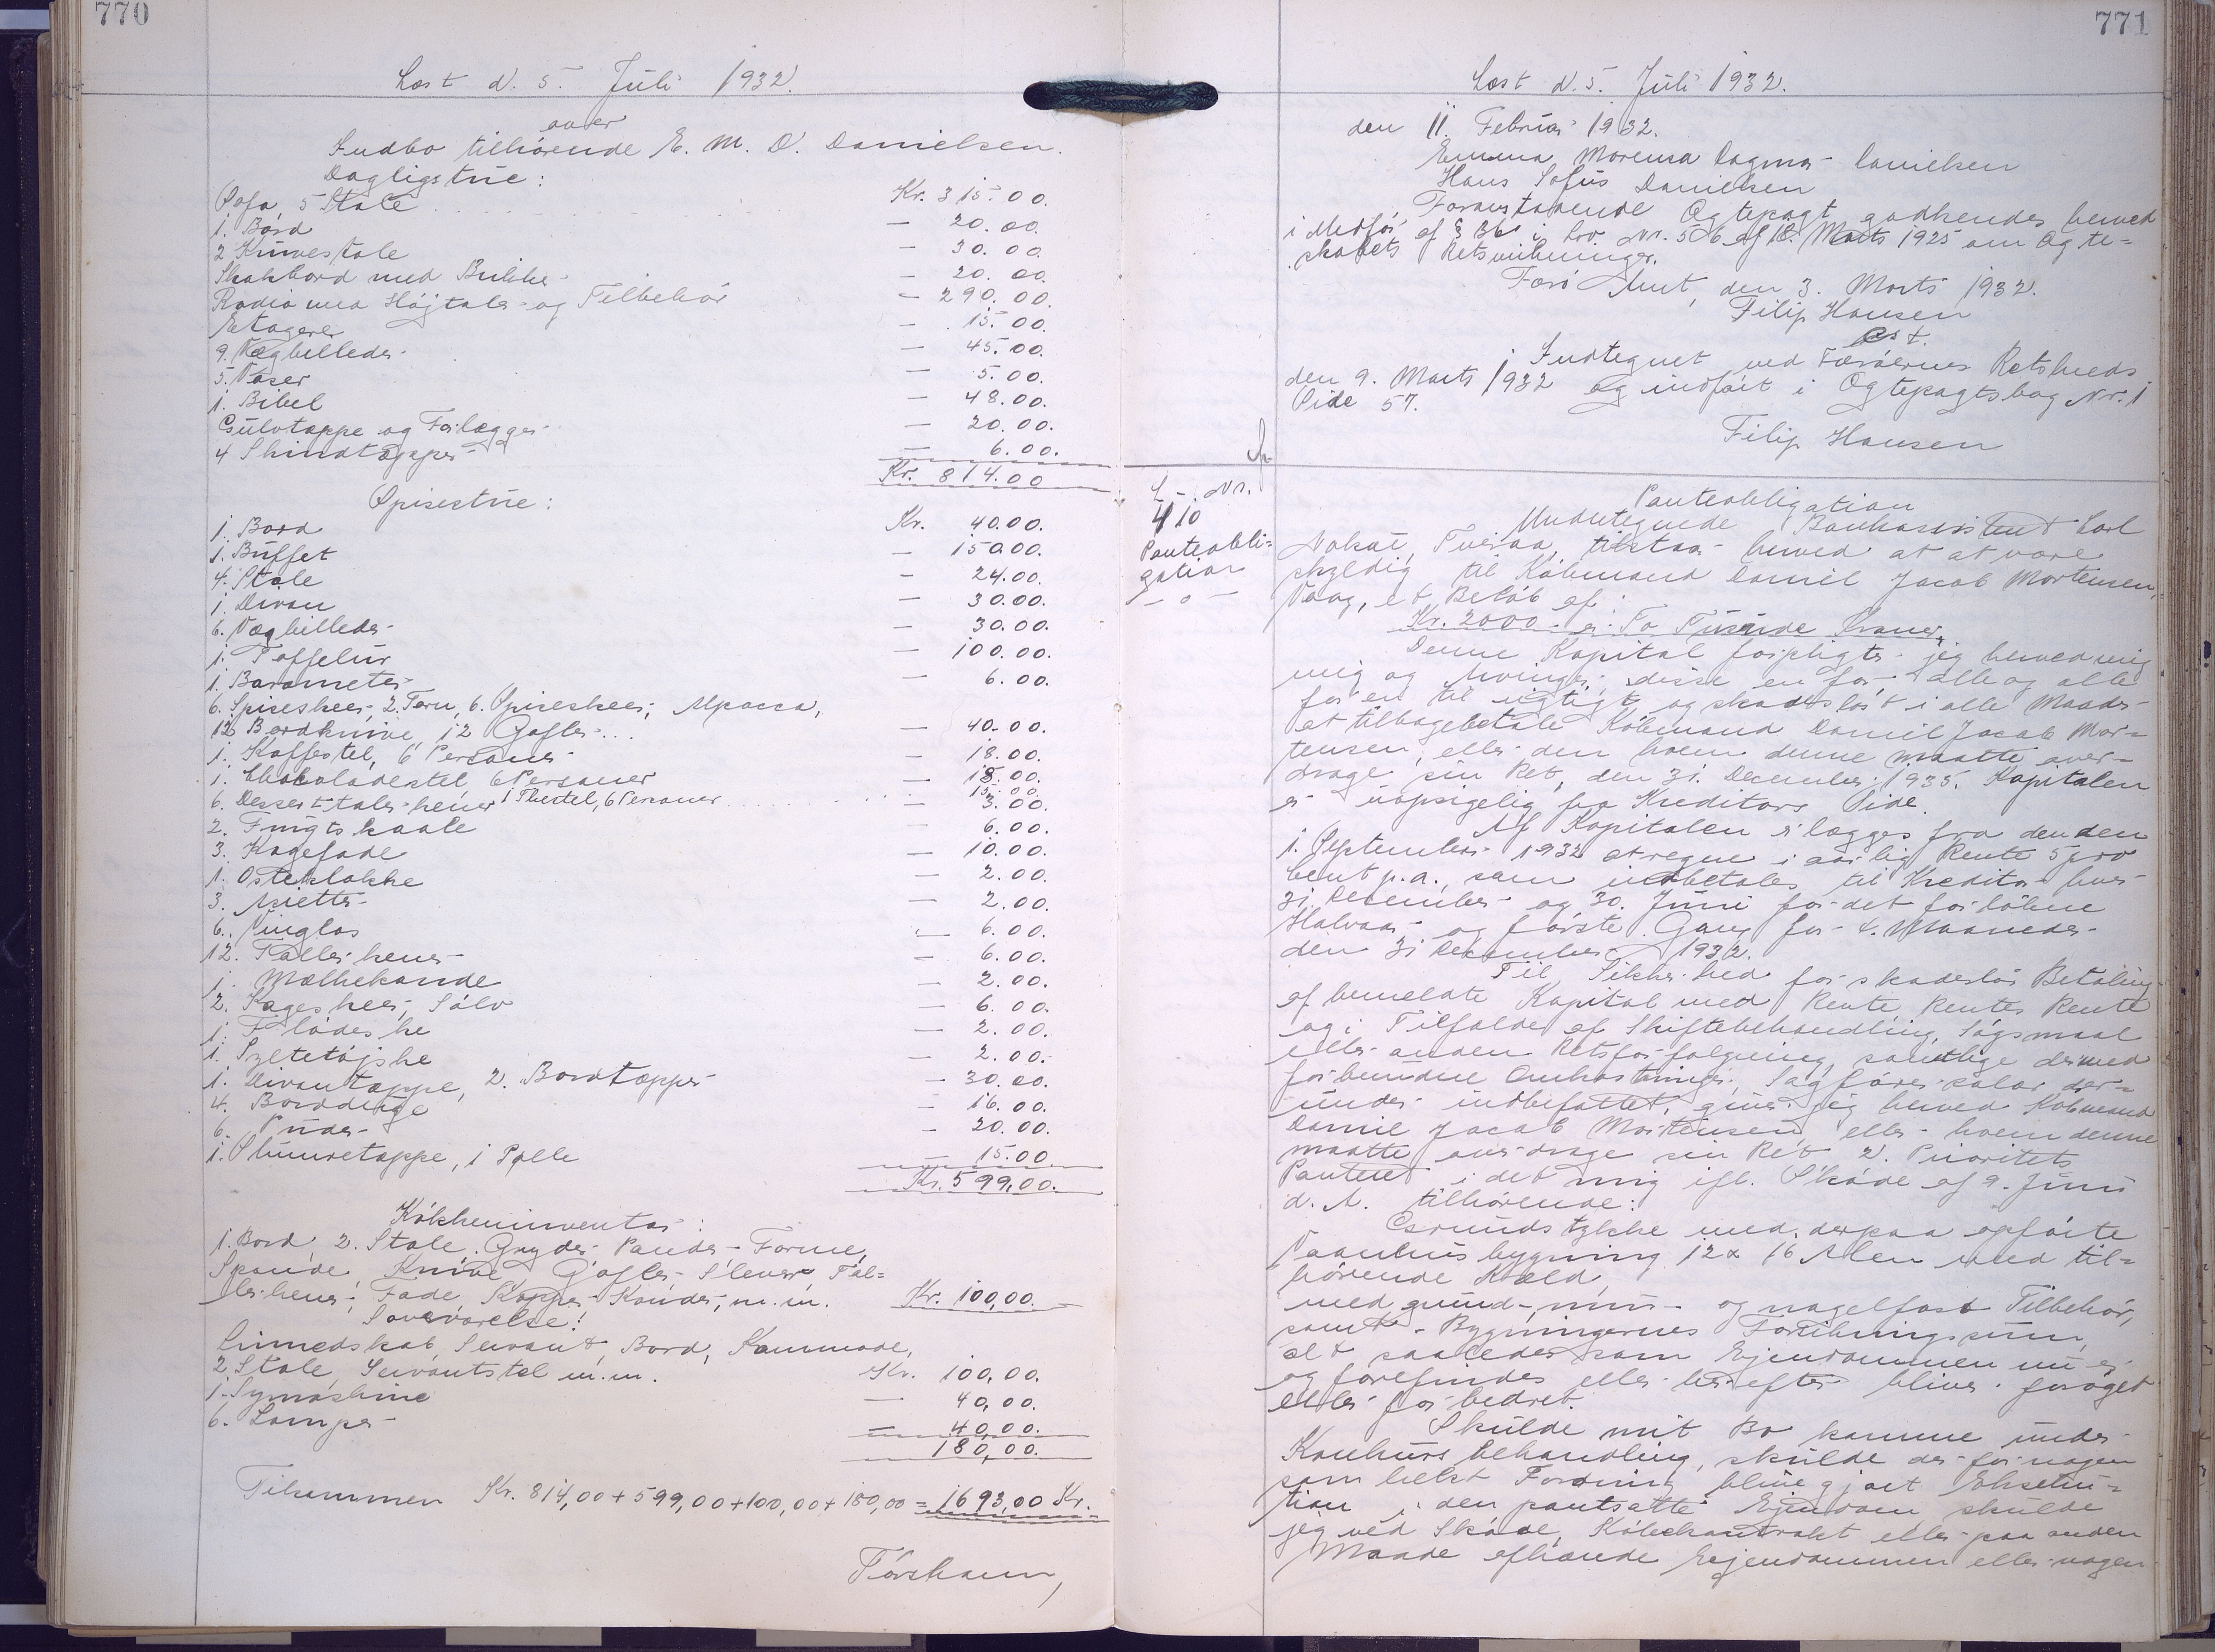 770
Læst d. 5. Juli 1932.
over
Indbo tilhørende E. M. D. Danielsen.
Dagligstue:
Sofa, 5 Stole Kr. 315.00.
1. Bord — 20.00.
2 Kurvestole — 30.00
Skakbord med Brikker — 20.00.
Radio med Højtaler og Tilbehör — 290.00.
Etagerer — 15.00.
9. Vægbilleder — 45.00.
5. Vaser — 5.00.
1. Bibel — 48.00.
Gulvtæppe og Forlægger — 20.00.
4 Skindtæpper — 6.00.
Kr. 814.00
Spisestue:
1. Bord Kr. 40.00.
1. Büffet — 150.00.
4. Stole — 24.00.
1. Divan — 30.00.
6. Vægbilleder — 30.00.
1. Taffelur — 100.00.
1. Barometer — 6.00.
6. Spiseskeer, 2. Törn, 6. Spiseskeer, Alpacca,
12 Bordknive, 12 Gafler... — 40.00.
1. Kaffestel, 6 Personer — 18.00.
1. Chokoladestel, 6 Personer — 18.00.
6. Desserttalerkener 1 Thestel, 6 Personer 15.00
— 3.00.
2. Frugtskaale — 6.00.
3. Kagefade — 10.00.
1. Osteklokke — 2.00.
3. Asietter — 2.00.
6. Vinglas — 6.00.
12. Tallerkener — 6.00.
1. Mælkekande — 2.00.
2. Kageskeer, Sölv — 6.00.
1. Flödeske — 2.00.
1. Syltetöjske — 2.00.
1. Divantæppe, 2. Bordtæpper — 30.00.
4. Borddüge — 16.00.
6. Puder — 20.00.
1. Slumretæppe, 1 Pølle — 15.00
Kr. 599,00.
Kökkeninventar:
1. Bord, 2. Stole, Gryder, Pander, Forme,
Spande, Knive, Gafler, Slever, Tal=
lerkener, Fade, Kopper, Kander, m.m. Kr. 100,00.
Soveværelse:
Linnedskab, Servant, Bord, Kommode,
2. Stole, Servantstel m.m. Kr. 100,00.
1. Symaskine — 40,00.
6. Lamper — 40,00.
180,00.
Tilsammen Kr. 814,00 + 599,00 + 100,00 + 180,00 = 1693,00 Kr.
Tórshavn,
771
Læst d. 5. Juli 1932.
den 11. Februar 1932.
Emma Morensa Dagmar Danielsen
Hans Sofus Danielsen
Foranstaaende Ægtepagt godkendes herved
i Medför af § 36 i Lov Nr. 56 af 18. Marts 1925 om Ægte=
skabets Retsvirkninger.
Færö Amt, den 3. Marts 1932.
Filip Hansen
cst.
Indtegnet ved Færöernes Retskreds
den 9. Marts 1932 og indfört i Ægtepagtsbog Nr. 1
Side 57.
Filip Hansen
L.-Nr.
410
Panteobli=
gation
— o —
Panteobligation
Undertegnede Bankassistent Carl
Tveraa, tilstaar herved at at være
skyldig til Köbmand Daniel Jacob Mortensen,
Vaag, et Belöb af:
Kr. 2000. er To Tusinde Kroner.
Denne Kapital forpligter jeg herved mig
mig og Arvinger, disse en for alle og alle
for en til rigtigt og skadeslöst i alle Maader
at tilbagebetale Köbmand Daniel Jacob Mor=
tensen, eller den hvem denne maatte over=
drage sin Ret, den 31. December 1935. Kapitalen
er uopsigelig fra Kreditors Side.
Af Kapitalen erlægges fra den den
1. September 1932 at regne i aarlig Rente 5 pro
Cent p.a., som indbetales til Kreditor hver
31. December og 30. Juni for det forlöbne
Halvaar og förste Gang for 4. Maaneder
den 31 December 1932.
Til Sikkerhed for skadeslös Betaling
af bemeldte Kapital med Rente, Rentes Rente
og i Tilfælde af Skiftebehandling, Sögsmaal
eller anden Retsforfölgning, samtlige dermed
forbundne Omkostninger, Sagförersalær der=
under indbefattet, giver jeg herved Köbmand
Daniel Jacob Mortensen eller hvem denne
maatte overdrage sin Ret 2. Prioritets
Panteret i det mig ifl. Sköde af 9. Juni
d. A. tilhörende:
Grundstykke med derpaa opförte
Vaanhusbygning 12 x 16 Alen med til=
hörende Kæld,
med grund-, mur- og nagelfast Tilbehör,
samt Bygningernes Forsikringssum,
alt saaledes som Ejendommen nu er
og forefindes eller herefter bliver foröget
eller forbedret.
Skulde mit Bo komme under
Konkursbehandling, skulde der for nogen
som helst Fordring blive gjort Eksecu=
tion i den pantsatte Ejendom, skulde
jeg ved Sköde, Köbekontrakt eller paa anden
Maade afhænde Ejendommen eller nogen